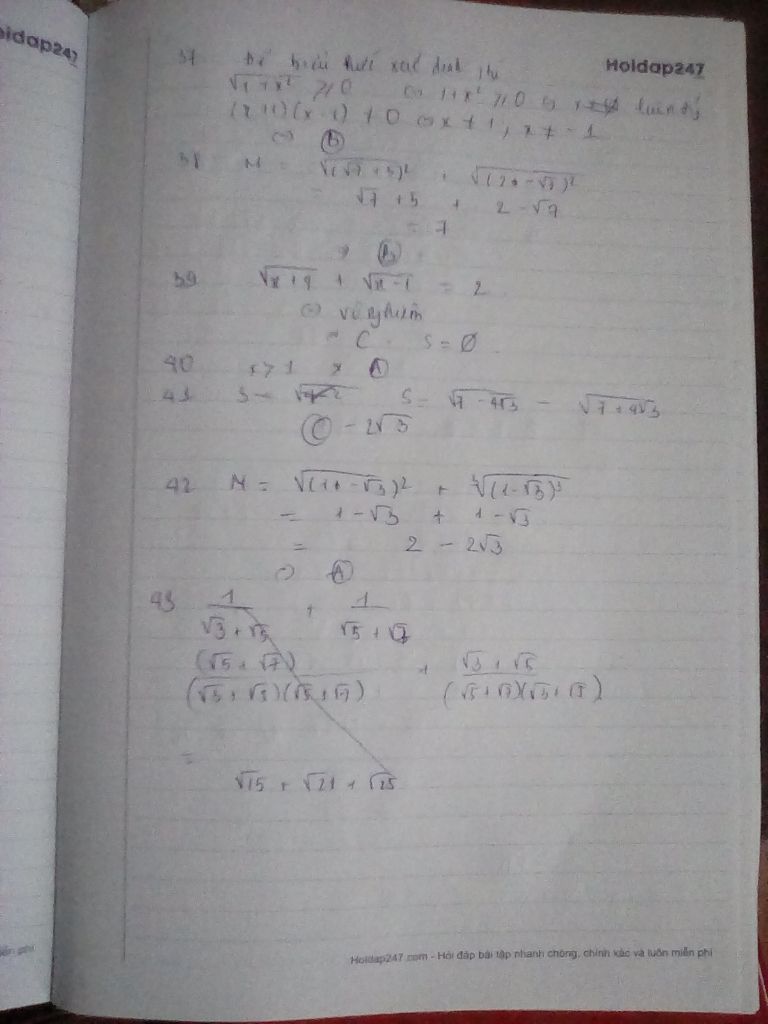 Hoidap247
37 Để biểu thức xác định thì
√1+x² ≥ 0 ⇔ 1+x² ≥ 0 luôn đ
(x+1)(x-1) ≠ 0 ⇔ x ≠ 1, x ≠ -1
⇔ B
38 M = √(√7+5)² + √(2-√7)²
= √7 + 5 + 2 - √7
= 7
B
39 √x+9 + √x-1 = 2
⇔ vô nghiệm
C. S = Ø
40 x > 1 A
41 S = S = √7-4√3 - √7+4√3
C -2√3
42 M = √(1-√3)² + ³√(1-√3)³
= 1-√3 + 1-√3
= 2 - 2√3
A
43 1 + 1
√3+√5 √5+√7
(√5+√7) + √3+√5
(√3+√5)(√5+√7) (√5+√7)(√3+√5)
=
√15 + √21 + √25
Hoidap247.com - Hỏi đáp bài tập nhanh chóng, chính xác và luôn miễn phí